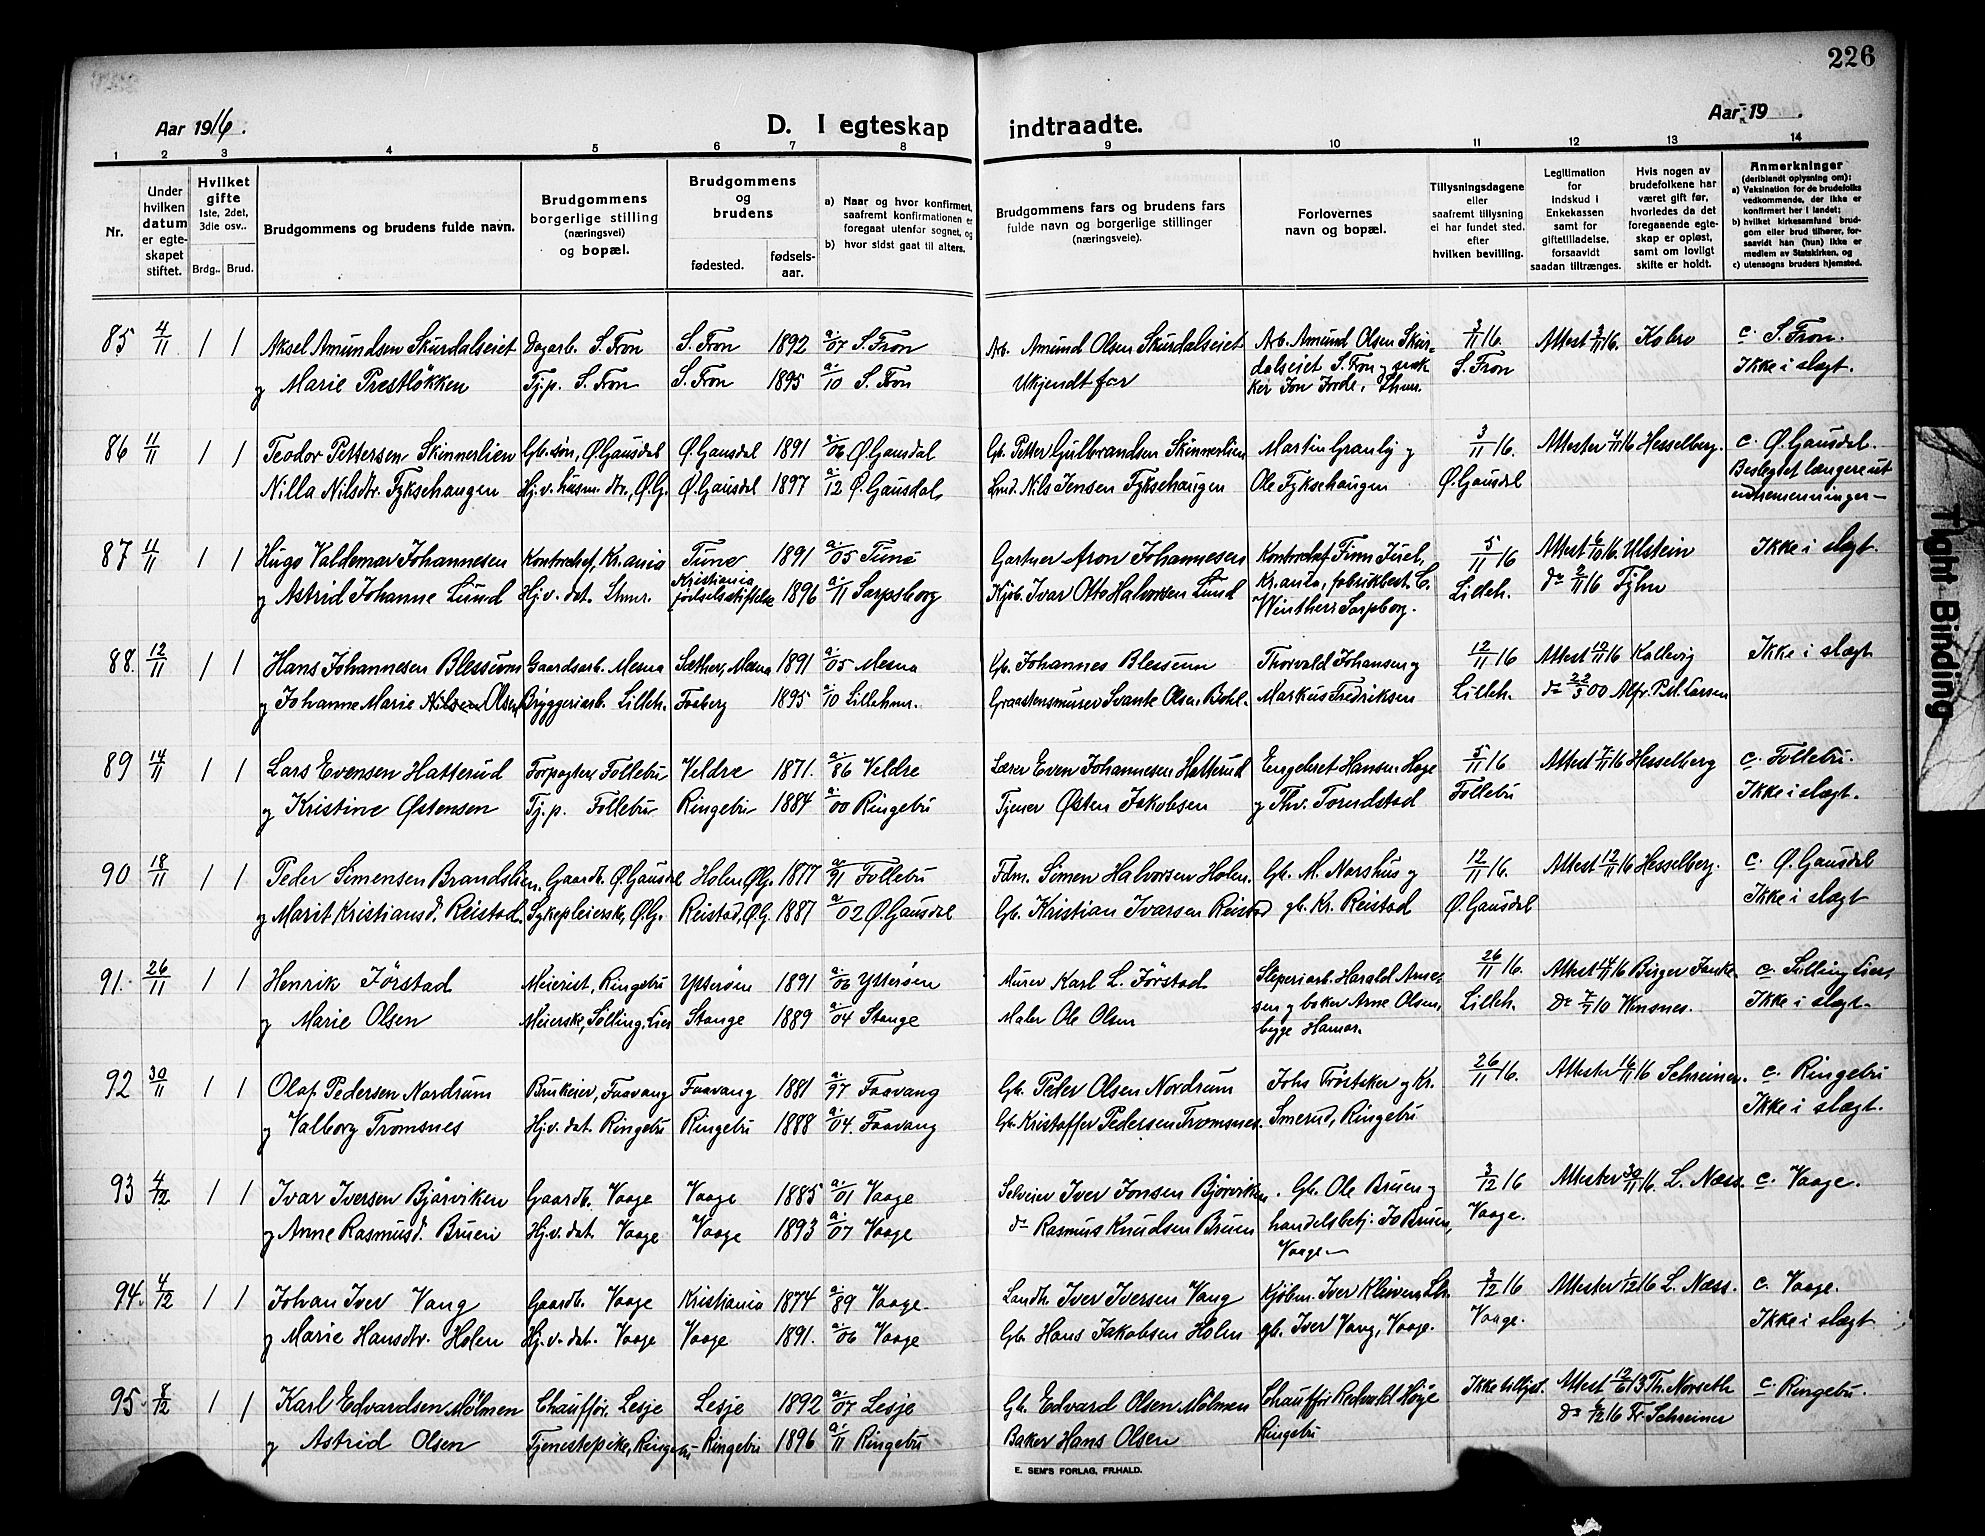 226
Aar 1916.
D. I egteskap indtraadte.
Aar 19 .
1 2 3 4 5 6 7 8 9 10 11 12 13 14
Nr.
Under hvilken datum er egteskapet stiftet.
Hvilket gifte
1ste, 2det, 3die osv..
Brdg.. Brud.
Brudgommens og brudens fulde navn.
Brudgommens borgerlige stilling (næringsvei) og bopæl.
Brudgommens og brudens
fødested. fødselsaar.
a) Naar og hvor konfirmert, saafremt konfirmationen er foregaat utenfor sognet, og
b) hvor sidst gaat til alters.
Brudgommens fars og brudens fars fulde navn og borgerlige stillinger (næringsveie).
Forlovernes navn og bopæl.
Tillysningsdagene eller saafremt tillysning ei har fundet sted. efter hvilken bevilling.
Legitimation for indskud i Enkekassen samt for giftetilladelse, forsaavidt saadan tiltrænges.
Hvis nogen av brudefolkene har været gift før, hvorledes da det foregaaende egteskap er opløst, samt om lovligt skifte er holdt.
Anmerkninger (deriblandt oplysning om):
a) Vaksination for de brudefolks vedkommende, der ikke er konfirmert her i landet;
b) hvilket kirkesamfund brudgom eller brud tilhører, forsaavidt han (hun) ikke er medlem av Statskirken, og
c) utensogns bruders hjemsted.
85 4/11 1 1 Aksel Amundsen Skurdalseiet Dagarb. S. Fron S. Fron 1892 a. 07 S. Fron Arb. Amund Olsen Skurdalseiet Arb. Amund Olsen Skur- 3/11 16. Attest 3/11 16. Kobro c. S. Fron.
og Marie Prestløkken Tj.p. S. Fron S. Fron 1895 a. 10 S. Fron Ukjendt far dalseiet S. Fron og snek- S. Fron Ikke i slegt.
ker Jon Jorde, Lhmr.
86 11/11 1 1 Teodor Pettersen Skinnerlien Gb. søn, Ø. Gausdal Ø. Gausdal 1891 a. 06 Ø. Gausdal Gb. Petter Gulbrandsen Skinnerlien Martin Granlij og 3/11 16. Attester 4/11 16 Hesselberg. c. Ø. Gausdal.
Nilla Nilsdtr. Fyksehaugen Hj.v. husm. dtr., Ø.G. Ø. Gausdal 1897 a. 12 Ø. Gausdal Nils Jensen Fyksehaugen Ole Fyksehaugen Ø. Gausdal Beslegtet længere ut
87 11/11 1 1 Hugo Valdemar Johannesen Kontorchef, Kr.ania Tune 1891 a. 05 Tune Gartner Aron Johannesen Kontorchef Finn Juel, 5/11 16 Attest 6/10 16. Ulstein Ikke i slegt.
og Astrid Johanne Lund Hj.v. dat. Lhmr. Kristiania fødselsstiftelse 1896 a. 11 Sarpsborg Kjøb. Ivar Otto Halvorsen Lund Kr.ania, fabrikbest. C. Lilleh. do 2/11 16 Fyhn
Winther Sarpborg.
88. 12/11 1 1 Hans Johannesen Blessum Gaardsarb. Mesna Sæther, Mesna 1891 a. 05 Mesna Gb. Johannes Blessum Thorvald Johansen og 12/11 16 Attest 12/11 16 Kallevig Ikke i slegt
og Johanne Marie Nilsen Olsen Bryggeriarb. Lilleh. Faaberg 1895 a. 10 Lillehmr. Graastensmurer Svante Olsen Bohl. Markus Fredriksen Lilleh. do 22/5 00 Alfr. P. M. Larsen
89 14/11 1 1 Lars Evensen Hatterud Forpagter Follebu Veldre 1871. a. 86 Veldre Lærer Even Johannesen Hatterud Engebret Hansen Hage 5/11 16 Attest 7/11 16 Hesselberg c. Follebu.
og Kristine Østensen Tj.p. Follebu Ringebu 1884 a. 00 Ringebu Tjener Østen Jakobsen og Thv. Tomdstad Follebu Ikke i slegt.
90 18/11 1 1 Peder Simensen Brandslien. Gaardb. Ø. Gausdal Holen Ø.G. 1877 a. 91 Follebu Fdm. Simen Halvorsen Holen. Gb. M. Narshus og 12/11 16. Attest 12/11 16 Hesselberg. c. Ø. Gausdal
og Marit Kristiansd. Reistad. Sykepleierske, Ø.G. Reistad, Ø.G. 1887 a. 02 Ø. Gausdal Gb. Kristian Ivarsen Reistad gb. Kr. Reistad Ø. Gausdal Ikke i slegt
91. 26/11 1 1 Henrik Førstad Meierist, Ringebu Ytterøen 1891 a. 06 Ytterøen Murer Karl L. Førstad Sliperiarb. Harald Arne- 26/11 16. Attest 14/11 16 Birger c. Solling, Lier
og Marie Olsen Meierske, Solling, Lier Stange 1889 a. 04 Stange Maler Ole Olsen sen og baker Arne Olsen, Lilleh. Do 7/7 10 Ikke i slegt.
begge Hamar.
92 30/11 1 1 Olaf Pedersen Nordrum Brukeier, Faavang Faavang 1881 a. 97 Faavang Gb. Peder Olsen Nordrum Johs Frøstaker og Kr. 26/11 16. Attester 16/11 16 Schreiner. c. Ringebu
og Valborg Tromsnes Hj.v. dat. Ringebu Ringebu 1888 a. 04. Faavang Gb. Kristoffer Pedersen Tromsnes. Smerud, Ringebu Ikke i slegt.
93 4/12 1 1 Ivar Iversen Bjørviken Gaardb. Vaage Vaage 1885 a. 01 Vaage Selveier Iver Jonsen Bjørviken. Gb. Ole Bruen og 3/12 16 Attester 30/11 16. L. Næss. c. Vaage.
og Anne Rasmusd. Bruen Hj.v. dat. Vaage Vaage 1893 a. 07 Vaage do Rasmus Knudsen Bruen handelsbetj. Jo Bruen, Vaage.
Vaage
94. 4/12 1 1 Johan Iver Vang Gaardb. Vaage Kristiania 1874 a. 89 Vaage. Landh. Iver Iversen Vang Kjøbm. Iver Kleiven, Lh. 3/12 16 Attester 1/12 16 L. Næss. c. Vaage.
og Marie Hansdtr. Holen Hj.v. dat. Vaage Vaage 1891. a. 06 Vaage Gb. Hans Jakobsen Holen gb. Iver Vang, Vaage. Vaage. Ikke i slegt
95. 8/12 1 1 Karl Edvardsen Mølmen Chauffør, Lesje Lesje 1892 a. 07 Lesje Gb. Edvard Olsen Mølmen Chauffør Redvald Høye Ikke tillyst. Attest 12/6 13 Th. Norseth c. Ringebu.
og Astrid Olsen Tjenestepike, Ringebu Ringebu 1896 a. 11 Ringebu Baker Hans Olsen Ringebu do 6/12 16 Fr. Schreiner
E. SEM'S FORLAG, FR.HALD.
Tight Binding